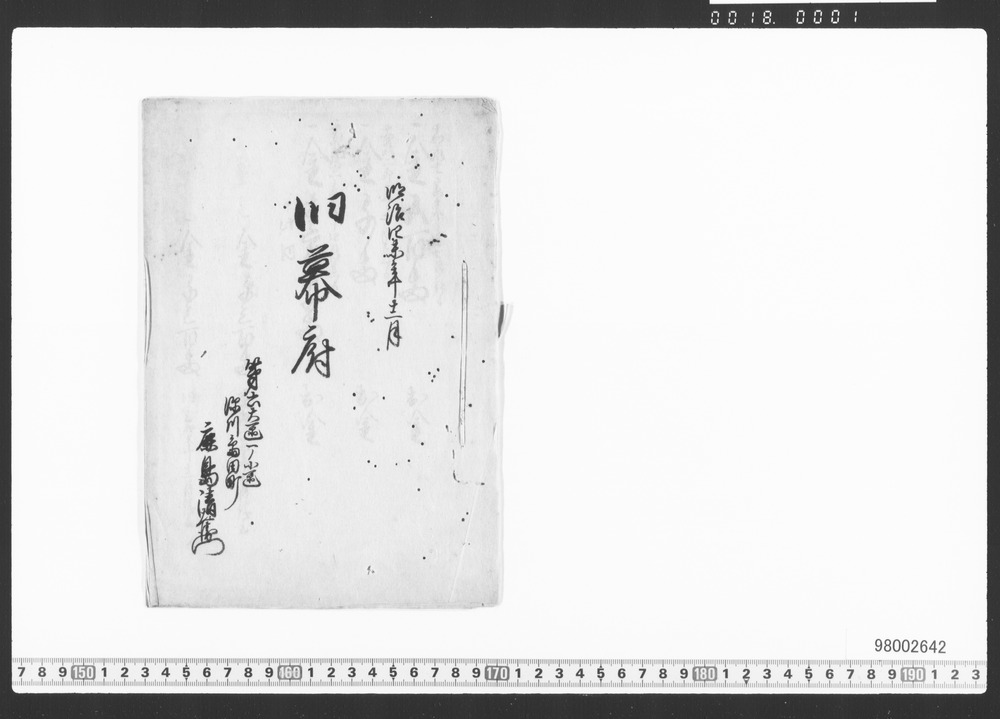 0018. 0001
明治四未年十二月
旧幕府
第六大区一ノ小区
深川島田町
鹿島清左衛門
98002642
7 8 9 150 1 2 3 4 5 6 7 8 9 160 1 2 3 4 5 6 7 8 9 170 1 2 3 4 5 6 7 8 9 180 1 2 3 4 5 6 7 8 9 190 1 2 3